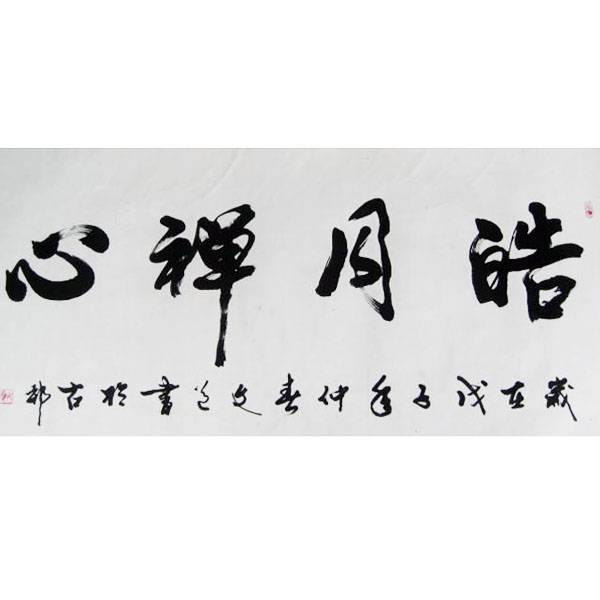 皓月禅心
歲在戊子年仲春文㐌書於古都